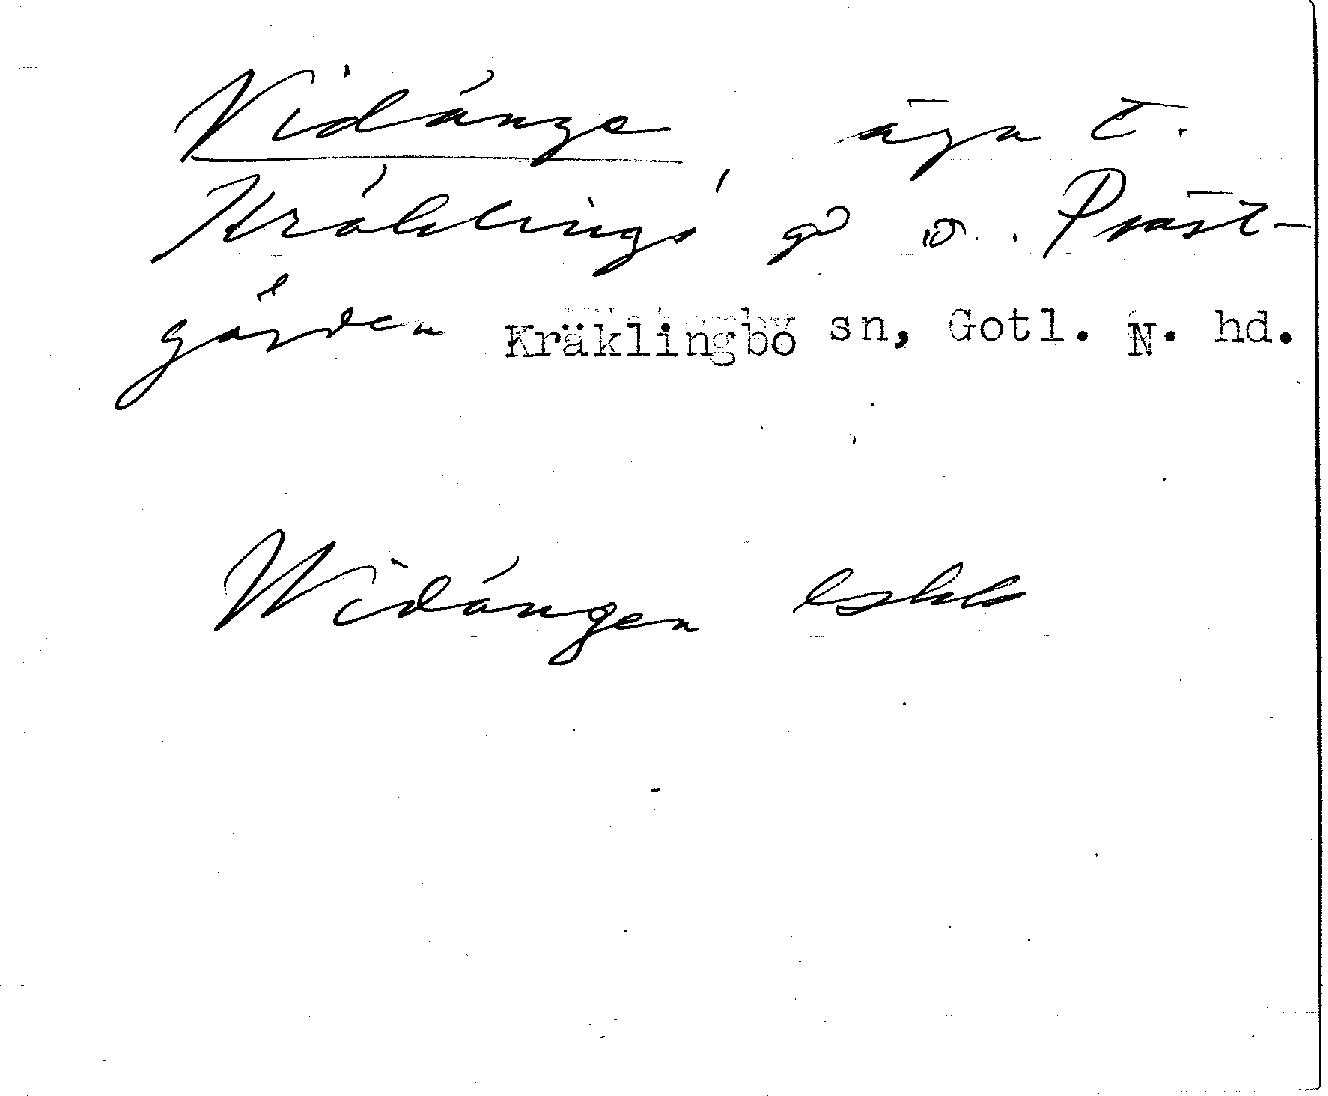 Vidänge, äga t.
Kräklings gd o. Präst-
gården Kräklingbo sn, Gotl. N. hd.
Widängen eskb